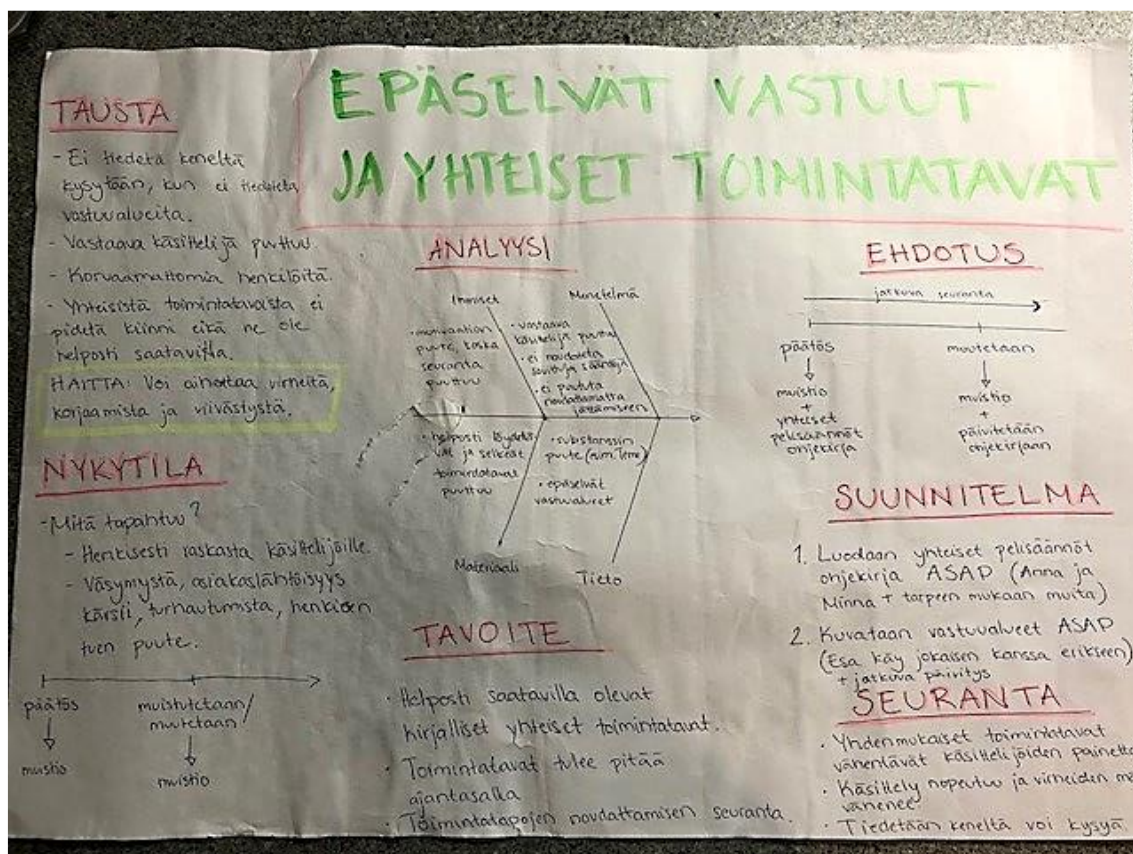 EPÄSELVÄT VASTUUT
JA YHTEISET TOIMINTATAVAT
TAUSTA
- Ei tiedetä keneltä
kysytään, kun ei tiedetä
vastuualueita.
- Vastaava käsittelijä puuttuu.
- Korvaamattomia henkilöitä.
- Yhteisistä toimintatavoista ei
pidetä kiinni eikä ne ole
helposti saatavilla.
HAITTA: Voi aiheuttaa virheitä,
korjaamista ja viivästystä.
NYKYTILA
- Mitä tapahtuu?
- Henkisesti raskasta käsittelijöille.
- Väsymystä, asiakaslähtöisyys
kärsii, turhautumista, henkisen
tuen puute.
päätös
muistio
muistutetaan/
muutetaan
muistio
ANALYYSI
Ihmiset
· motivaation
puute, koska
seuranta
puuttuu
Menetelmä
· vastaava
käsittelijä puuttuu
· ei noudateta
sovittuja sääntöjä
· ei puututa
noudattamatta
jättämiseen
· helposti löydettä-
vät ja selkeät
toimintatavat
puuttuu
Materiaali
· substanssin
puute
· epäselvät
vastuualueet
Tieto
TAVOITE
· Helposti saatavilla olevat
kirjalliset yhteiset toimintatavat.
· Toimintatavat tulee pitää
ajantasalla
· Toimintatapojen noudattamisen seuranta.
EHDOTUS
jatkuva seuranta
päätös
muistio
+
yhteiset
pelisäännöt
ohjekirja
muutetaan
muistio
+
päivitetään
ohjekirjaan
SUUNNITELMA
1. Luodaan yhteiset pelisäännöt
ohjekirja ASAP (Anna ja
Minna + tarpeen mukaan muita)
2. Kuvataan vastuualueet ASAP
(Esa käy jokaisen kanssa erikseen)
+ jatkuva päivitys
SEURANTA
· Yhdenmukaiset toimintatavat
vähentävät käsittelijöiden painetta
· Käsittely nopeutuu ja virheiden
vähenee
· Tiedetään keneltä voi kysyä